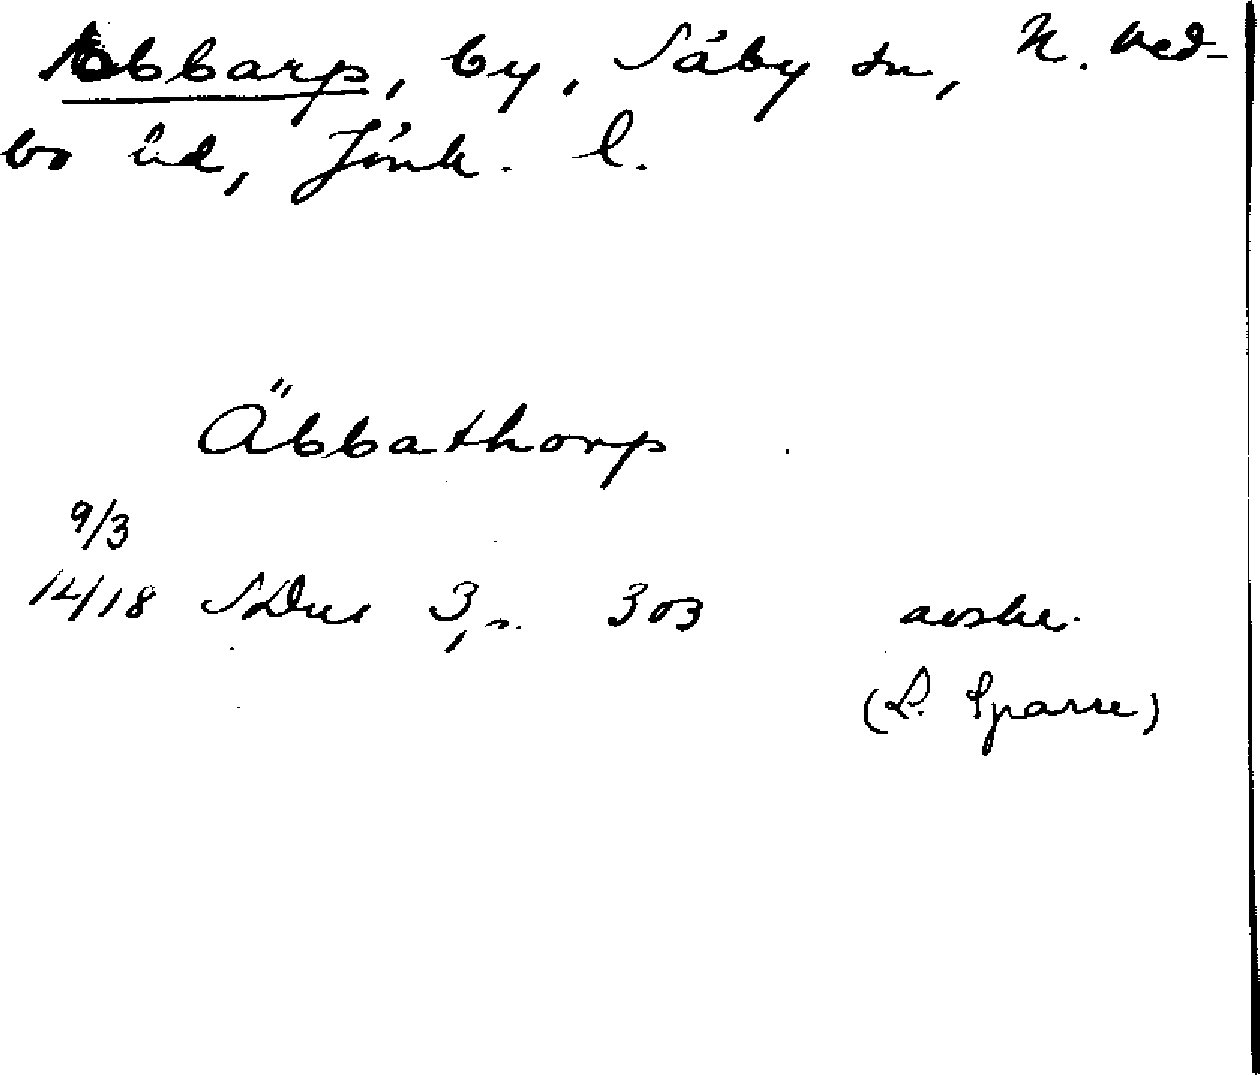 Äbbarp, by, Säby sn, N. Ved-
bo hd, Jönk. l.
Äbbathorp
9/3
1418 SDns 3, s. 303 avskr.
(L. Sparre)